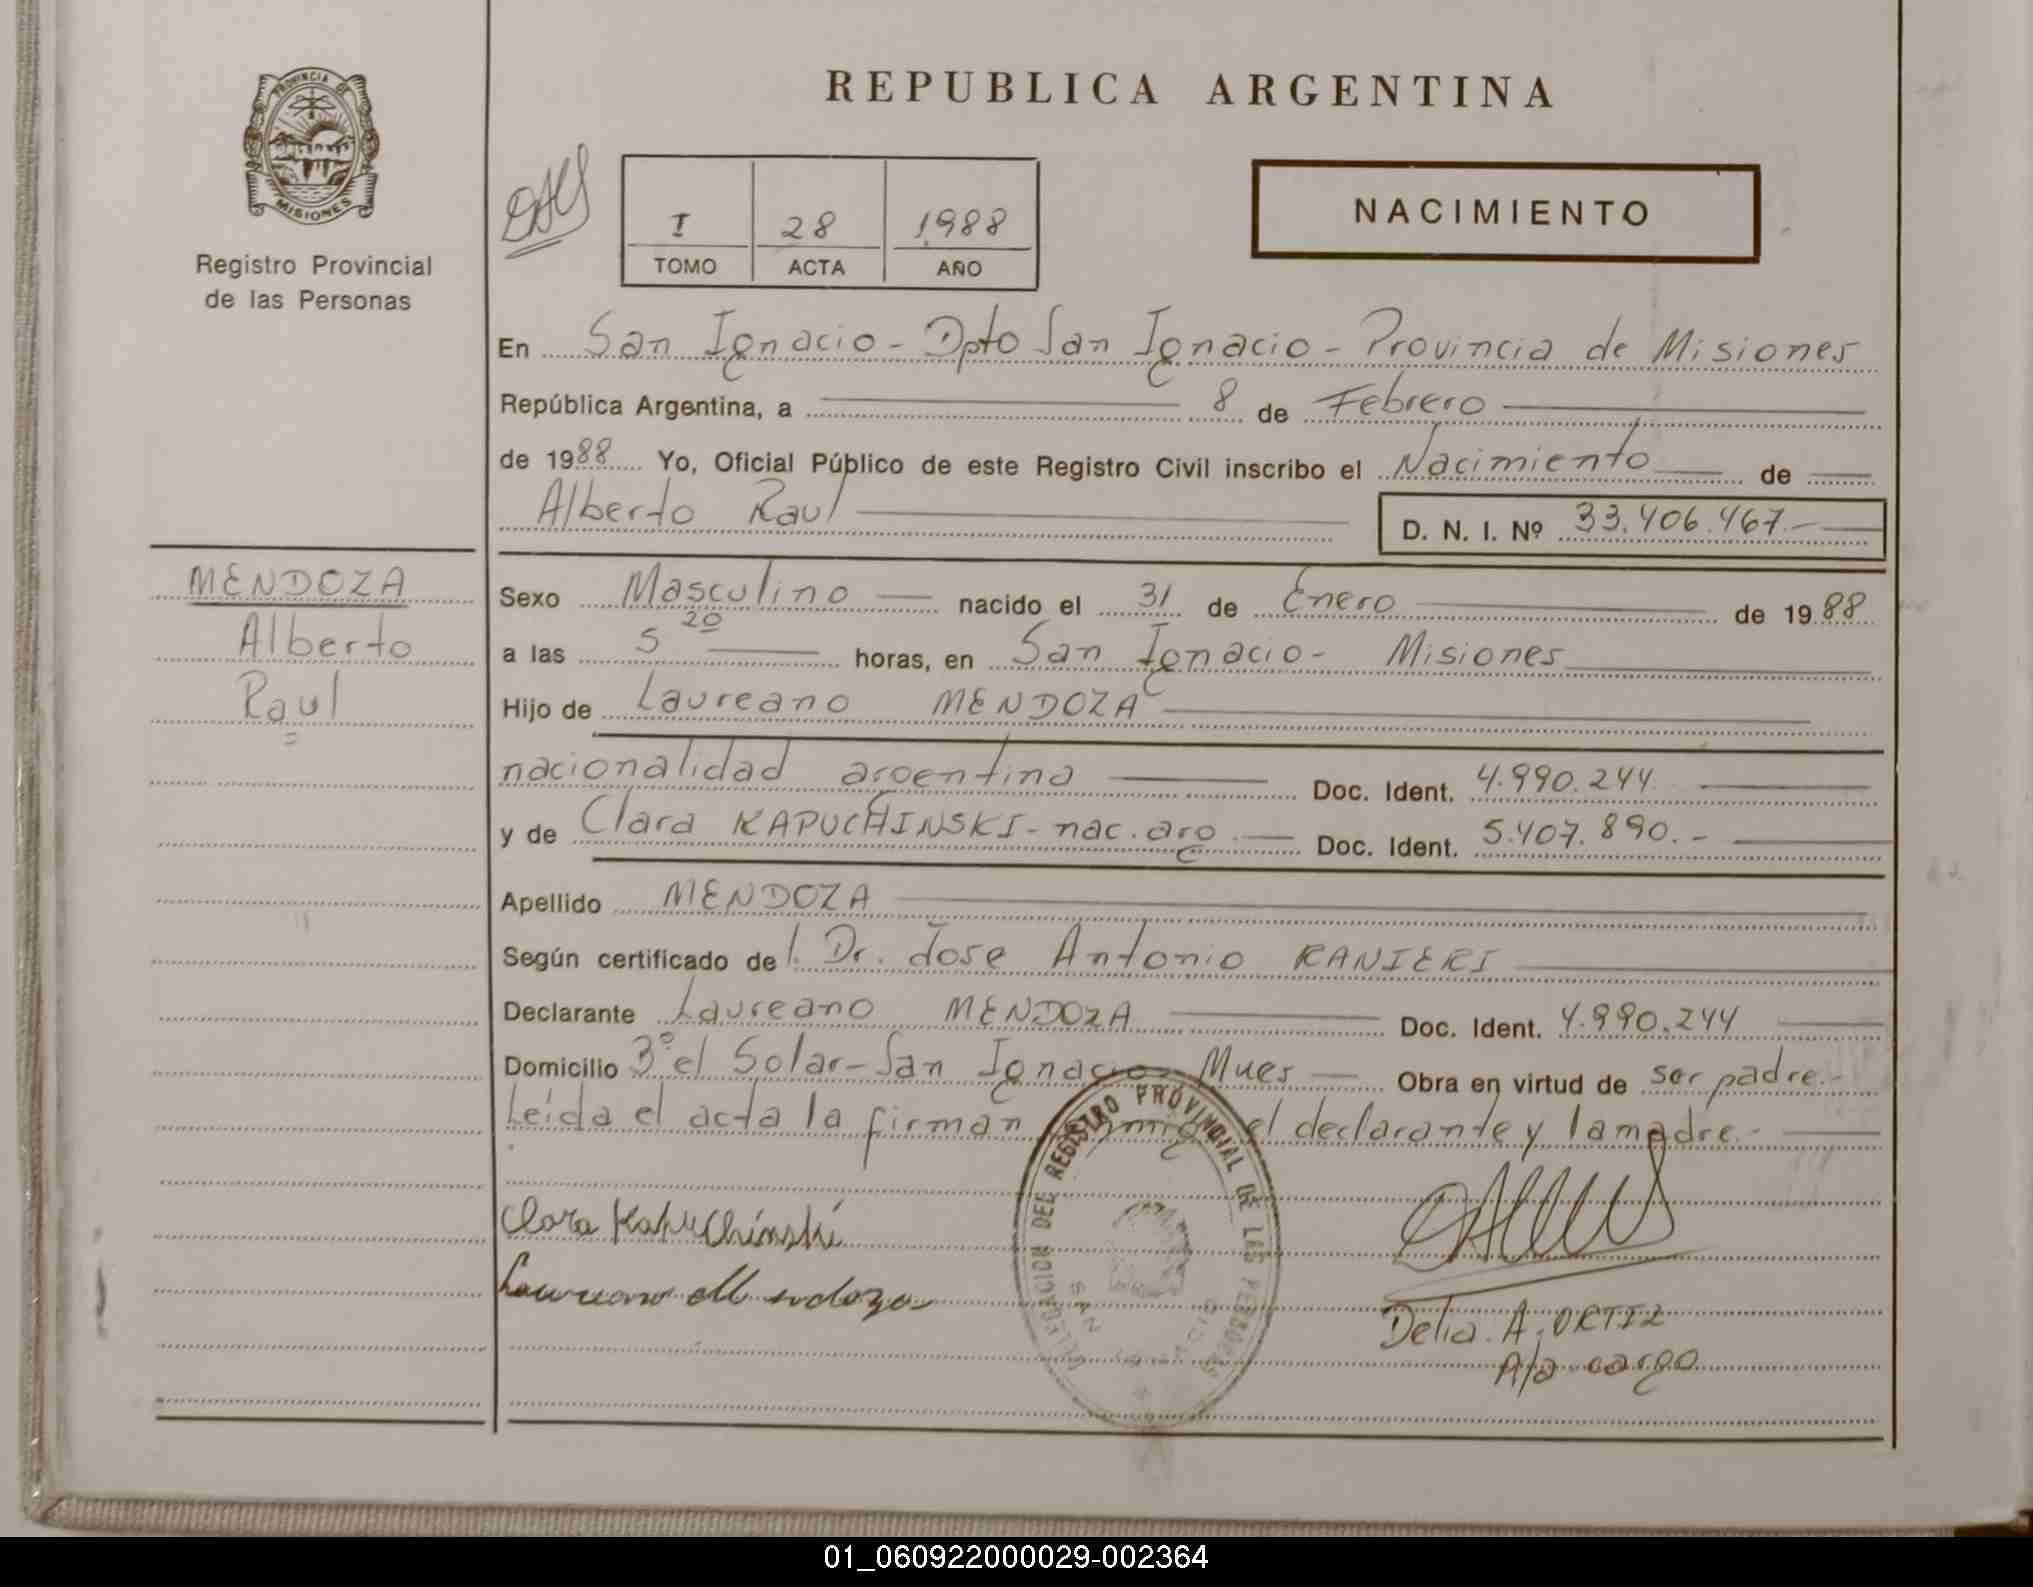 REPUBLICA ARGENTINA
PROVINCIA DE MISIONES
Registro Provincial
de las Personas
I 28 1988
TOMO ACTA AÑO
NACIMIENTO
En San Ignacio - Dpto San Ignacio - Provincia de Misiones
República Argentina, a 8 de Febrero
de 1988 Yo, Oficial Público de este Registro Civil inscribo el Nacimiento de
Alberto Raul D. N. I. Nº 33.406.467.-
MENDOZA
Alberto
Raul
Sexo Masculino nacido el 31 de Enero de 1988
a las 5 20 horas, en San Ignacio - Misiones
Hijo de Laureano MENDOZA
nacionalidad argentina Doc. Ident. 4.990.244.
y de Clara KAPUCHINSKI - nac. arg. Doc. Ident. 5.407.890.-
Apellido MENDOZA
Según certificado de l. Dr. Jose Antonio RANIERI
Declarante Laureano MENDOZA Doc. Ident. 4.990.244
Domicilio 3º el Solar - San Ignacio - Mnes Obra en virtud de ser padre.-
Leída el acta la firman conmigo el declarante y la madre.-
DELEGACION DEL REGISTRO PROVINCIAL DE LAS PERSONAS
SAN IGNACIO
Clara Kapuchinski
Laureano Mendoza
Delia A. ORTIZ
A/a cargo
01_060922000029-002364